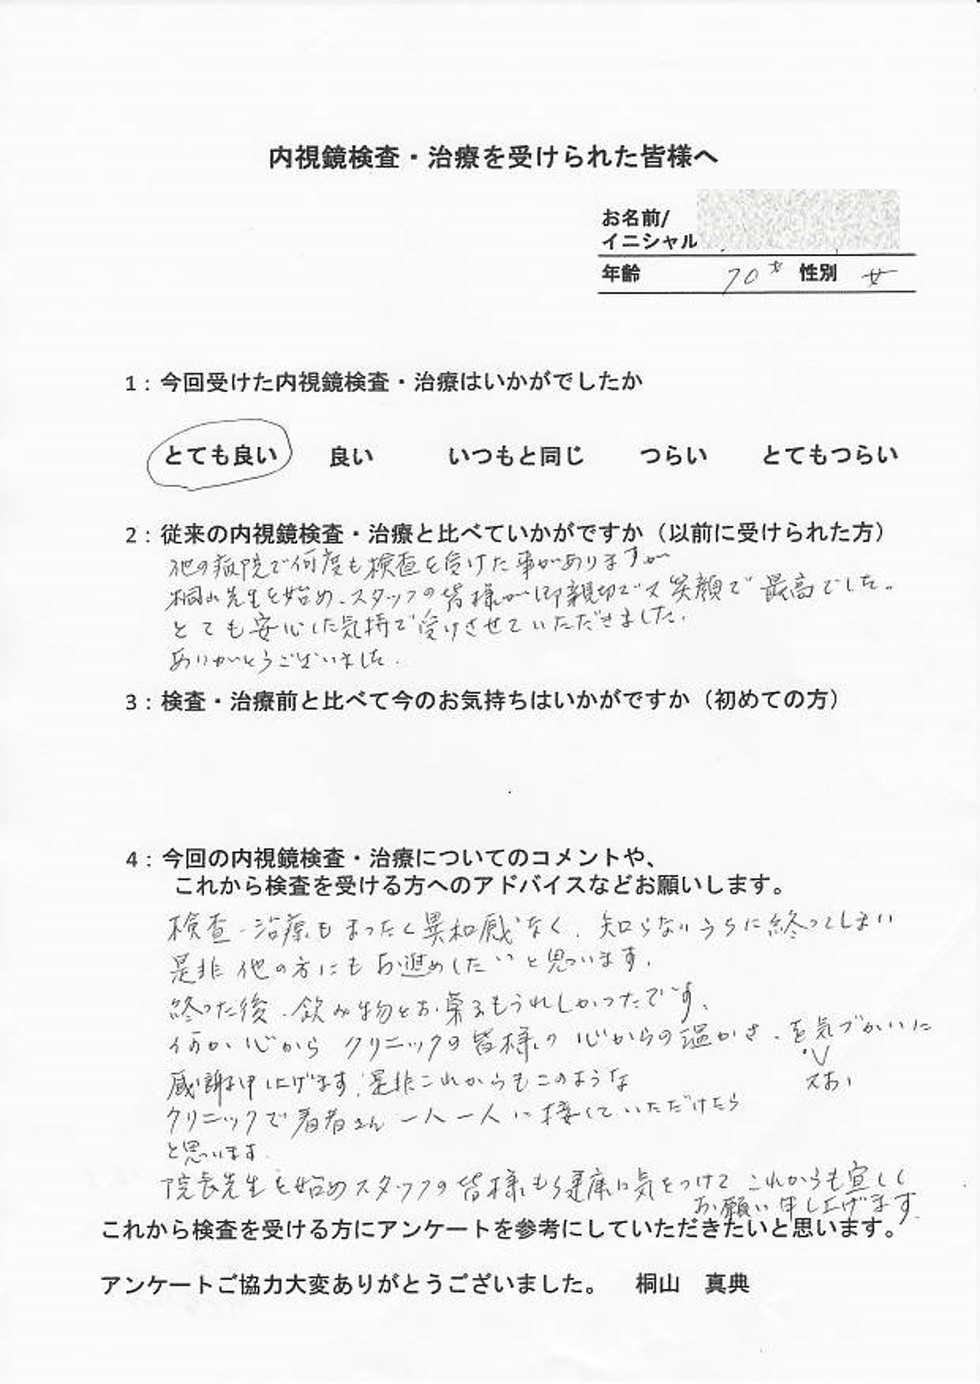 内視鏡検査・治療を受けられた皆様へ
お名前/
イニシャル
年齢 70才 性別 女
1：今回受けた内視鏡検査・治療はいかがでしたか
とても良い 良い いつもと同じ つらい とてもつらい
2：従来の内視鏡検査・治療と比べていかがですか（以前に受けられた方）
他の病院で何度も検査を受けた事がありますが
桐山先生を始め、スタッフの皆様が御親切で又笑顔で最高でした。
とても安心した気持で受けさせていただきました.
ありがとうございました.
3：検査・治療前と比べて今のお気持ちはいかがですか（初めての方）
4：今回の内視鏡検査・治療についてのコメントや、
これから検査を受ける方へのアドバイスなどお願いします。
検査・治療もまったく異和感なく、知らないうちに終ってしまい
是非他の方にもお進めしたいと思います.
終った後、飲み物とお菓子もうれしかったです、
何か心からクリニックの皆様の心からの温かさ、を気づかいに
感謝申し上げます.是非これからもこのような
クリニックで患者さん一人一人に接していただけたら
と思います.
院長先生を始めスタッフの皆様も健康に気をつけて これからも宜しく
お願い申し上げます.
これから検査を受ける方にアンケートを参考にしていただきたいと思います。
アンケートご協力大変ありがとうございました。 桐山 真典